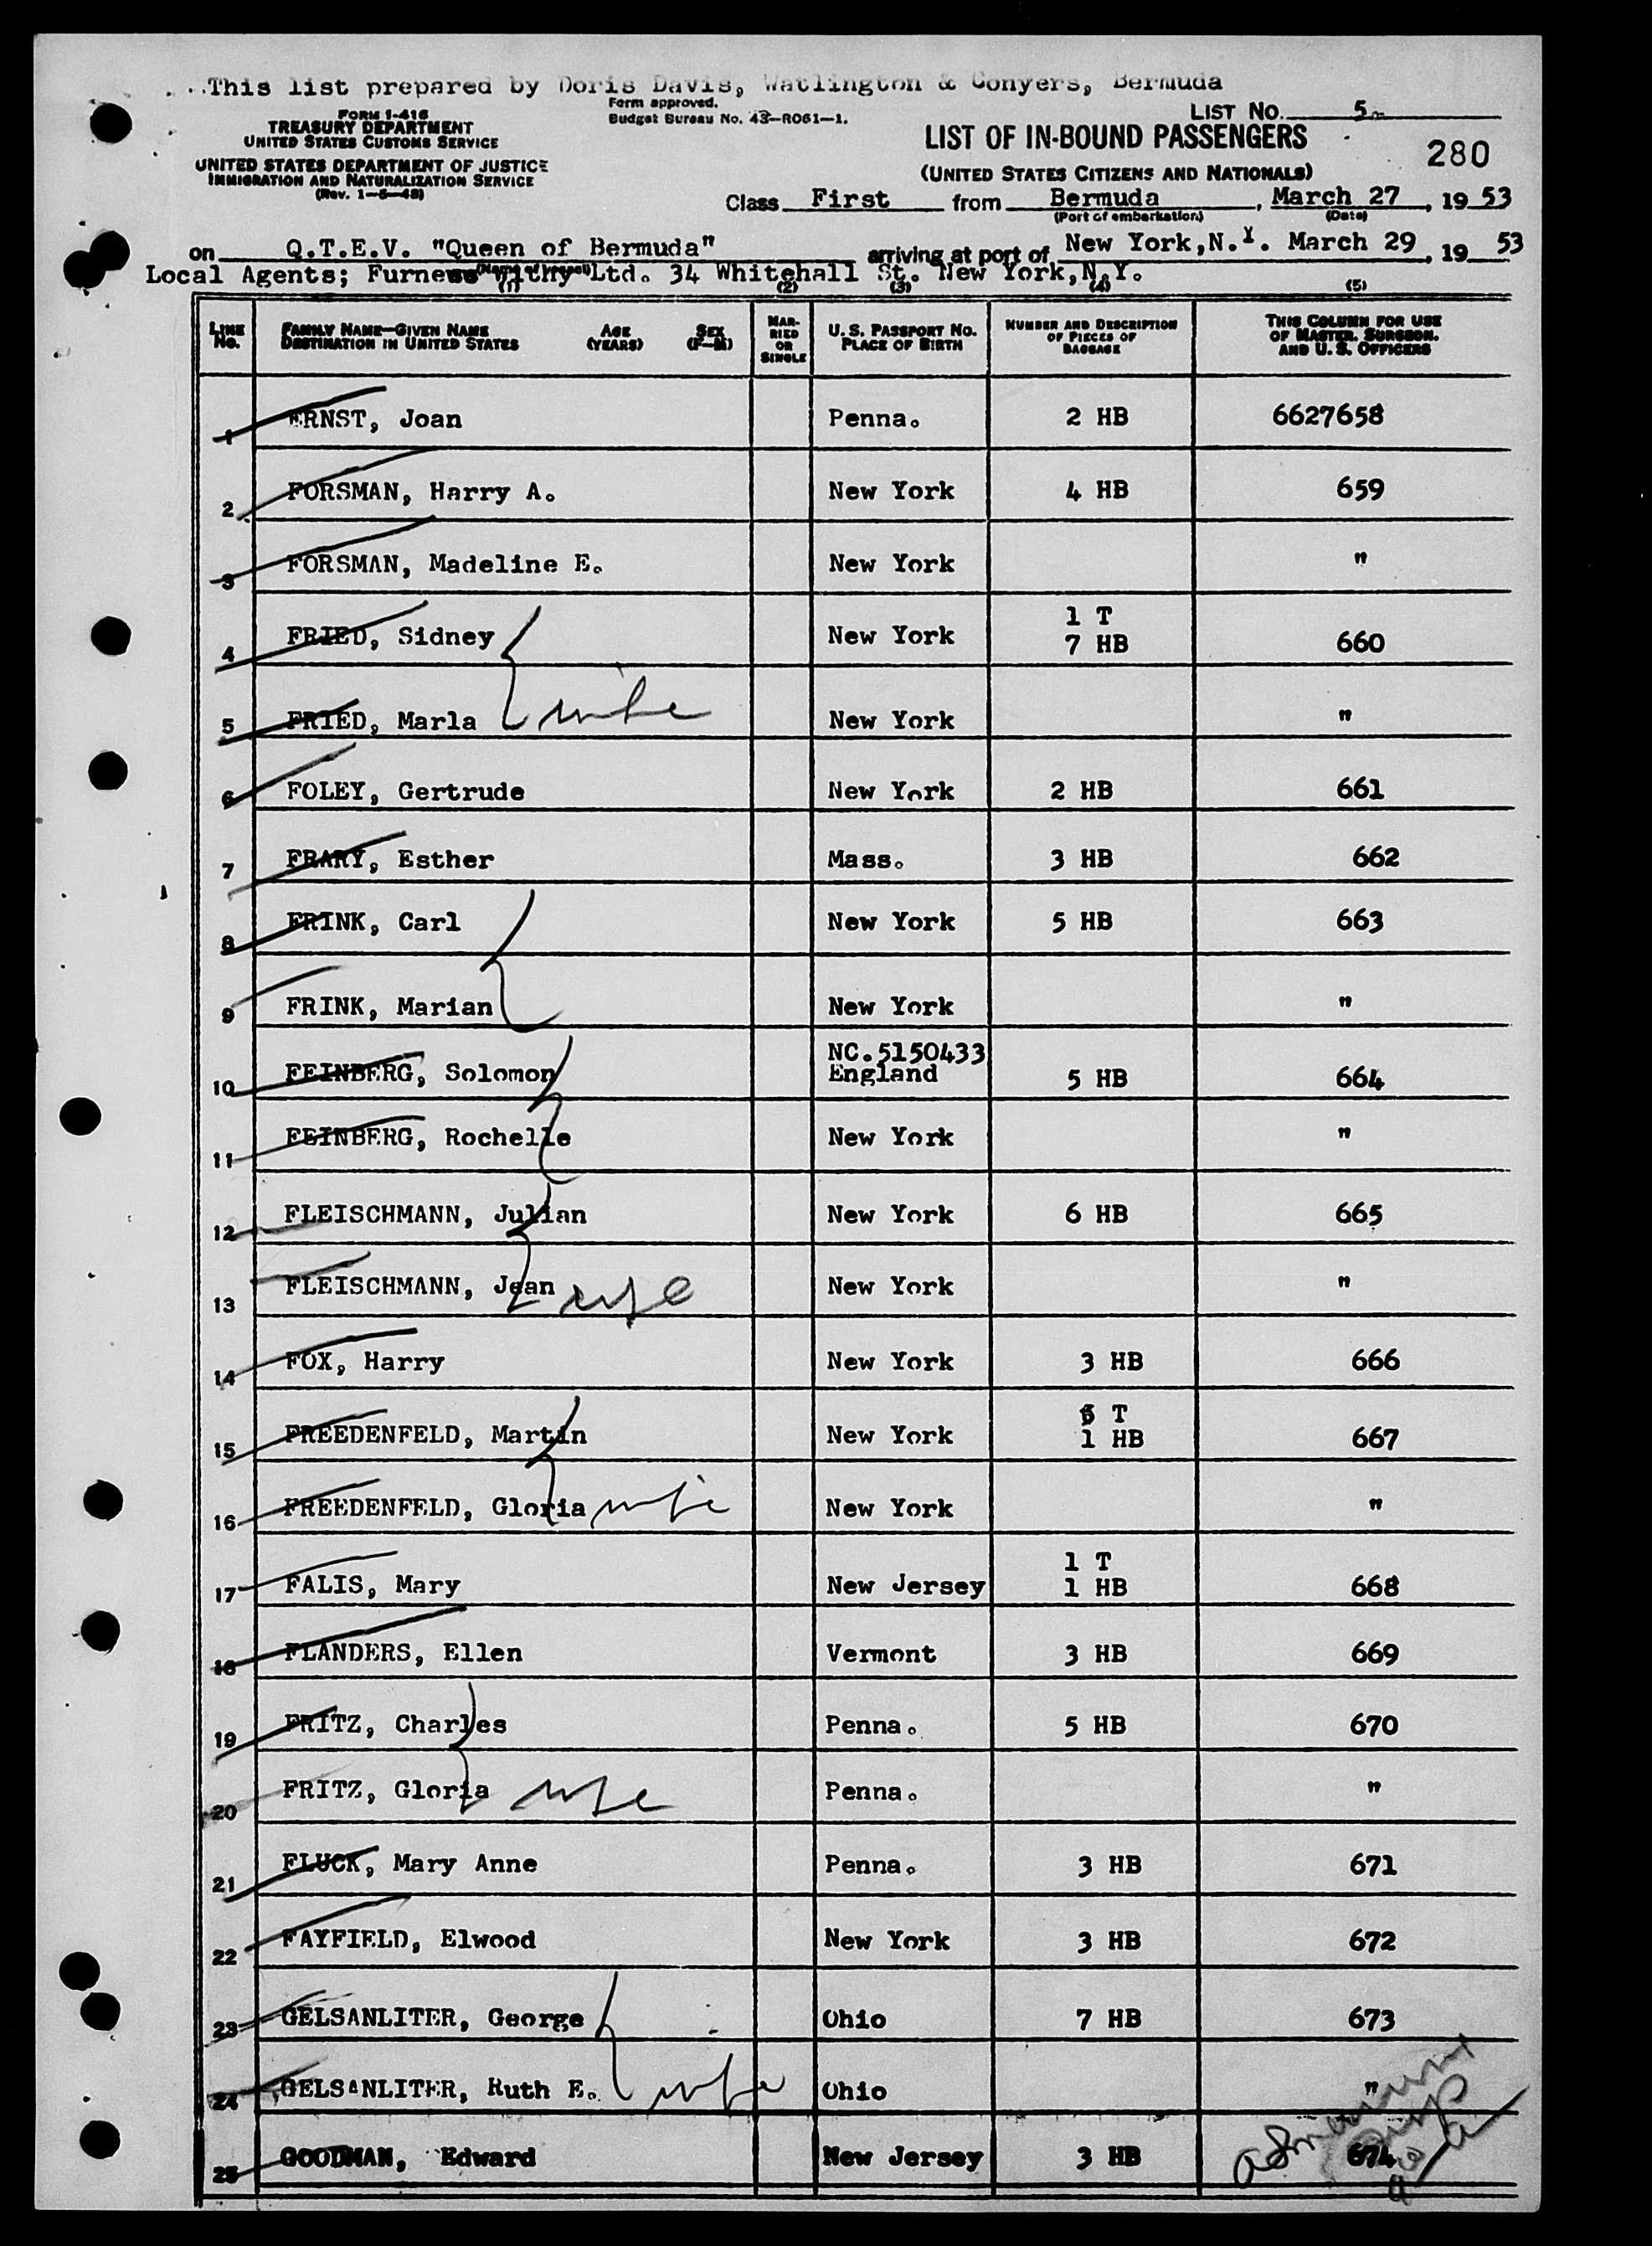 This list prepared by Doris Davis, Watlington & Conyers, Bermuda
Form approved.
Budget Bureau No. 43-R061-1.
FORM I-416
TREASURY DEPARTMENT
UNITED STATES CUSTOMS SERVICE
UNITED STATES DEPARTMENT OF JUSTICE
IMMIGRATION AND NATURALIZATION SERVICE
(Rev. 1-5-48)
LIST NO. 5
LIST OF IN-BOUND PASSENGERS
280
(UNITED STATES CITIZENS AND NATIONALS)
Class First from Bermuda, March 27, 19 53
(Port of embarkation) (Date)
on Q.T.E.V. "Queen of Bermuda" arriving at port of New York, N.Y. March 29, 19 53
(Name of vessel)
Local Agents; Furness Withy Ltd. 34 Whitehall St. New York, N.Y.
(1) (2) (3) (4) (5)
LINE No. FAMILY NAME—GIVEN NAME DESTINATION IN UNITED STATES AGE (YEARS) SEX (F-M) MARRIED OR SINGLE U. S. PASSPORT NO. PLACE OF BIRTH NUMBER AND DESCRIPTION OF PIECES OF BAGGAGE THIS COLUMN FOR USE OF MASTER, SURGEON, AND U. S. OFFICERS
1 ERNST, Joan Penna. 2 HB 6627658
2 FORSMAN, Harry A. New York 4 HB 659
3 FORSMAN, Madeline E. New York "
4 FRIED, Sidney New York 1 T 7 HB 660
5 FRIED, Marla wife New York "
6 FOLEY, Gertrude New York 2 HB 661
7 FRARY, Esther Mass. 3 HB 662
8 FRINK, Carl New York 5 HB 663
9 FRINK, Marian New York "
10 FEINBERG, Solomon NC.5150433 England 5 HB 664
11 FEINBERG, Rochelle New York "
12 FLEISCHMANN, Julian New York 6 HB 665
13 FLEISCHMANN, Jean wife New York "
14 FOX, Harry New York 3 HB 666
15 FREEDENFELD, Martin New York T 1 HB 667
16 FREEDENFELD, Gloria wife New York "
17 FALIS, Mary New Jersey 1 T 1 HB 668
18 FLANDERS, Ellen Vermont 3 HB 669
19 FRITZ, Charles Penna. 5 HB 670
20 FRITZ, Gloria wife Penna. "
21 FLUCK, Mary Anne Penna. 3 HB 671
22 FAYFIELD, Elwood New York 3 HB 672
23 GELSANLITER, George Ohio 7 HB 673
24 GELSANLITER, Ruth E. wife Ohio "
25 GOODMAN, Edward New Jersey 3 HB 674